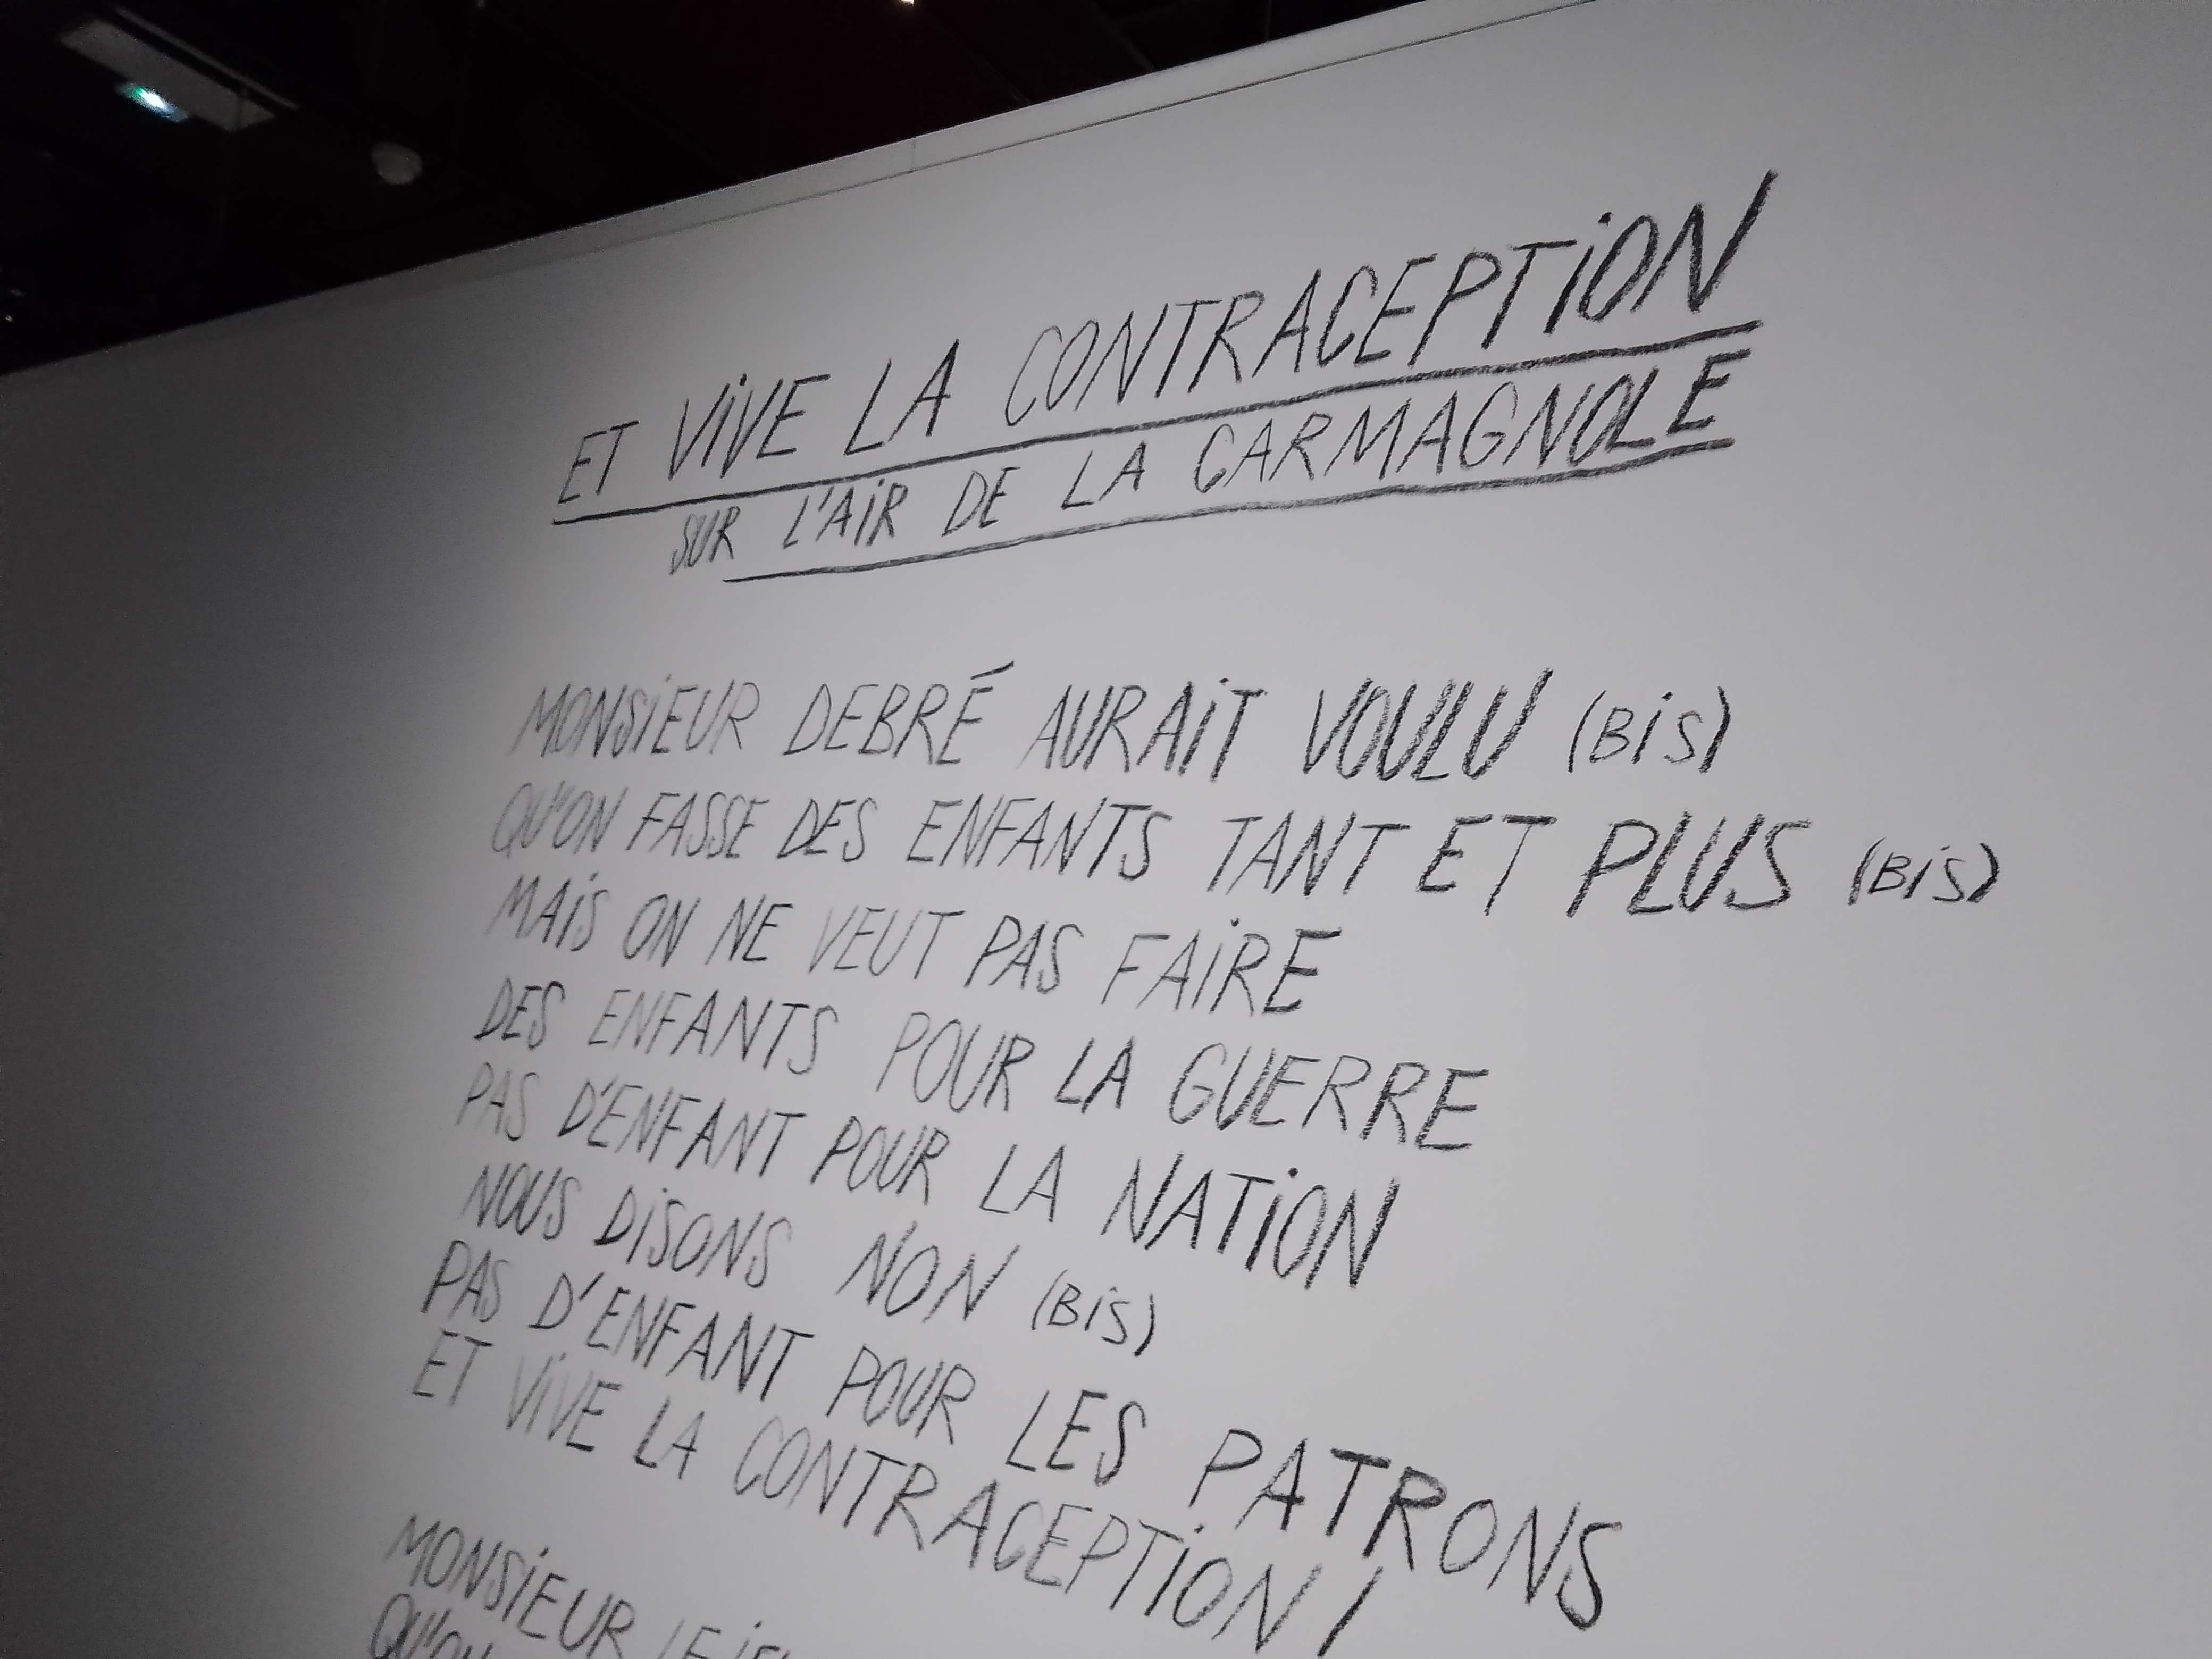 ET VIVE LA CONTRACEPTION
SUR L'AIR DE LA CARMAGNOLE
MONSIEUR DEBRÉ AURAIT VOULU (BIS)
QU'ON FASSE DES ENFANTS TANT ET PLUS (BIS)
MAIS ON NE VEUT PAS FAIRE
DES ENFANTS POUR LA GUERRE
PAS D'ENFANT POUR LA NATION
NOUS DISONS NON (BIS)
PAS D'ENFANT POUR LES PATRONS
ET VIVE LA CONTRACEPTION!
MONSIEUR
QU'ON